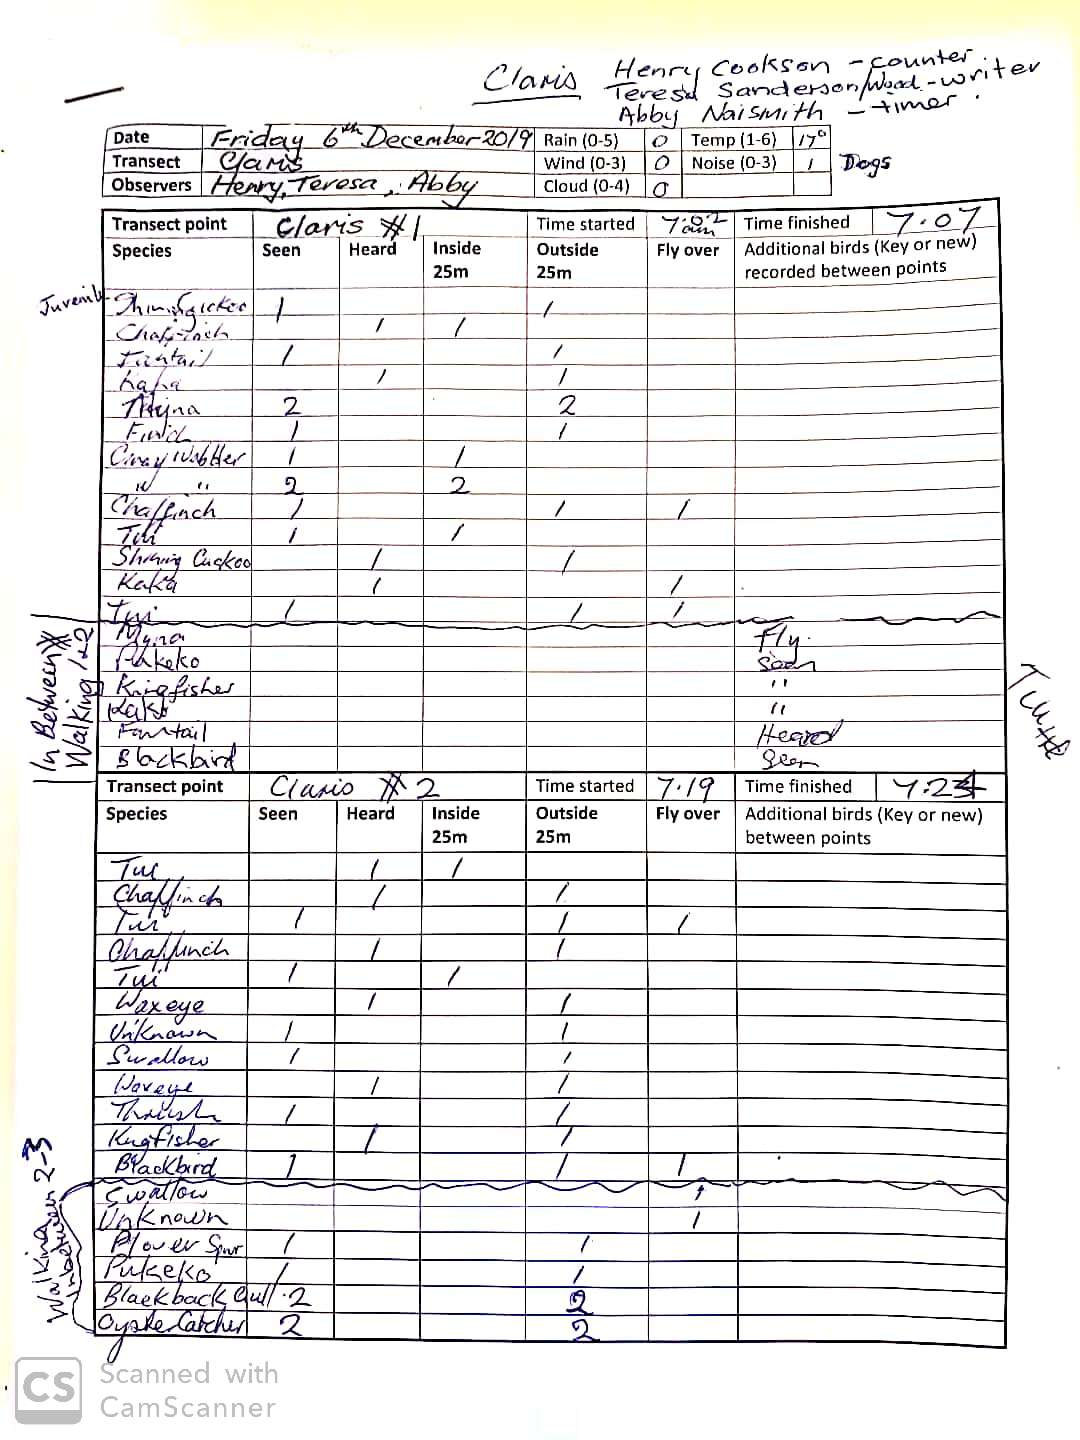 Claris Henry Cookson - counter
Teresa Sanderson/Wood - writer
Abby Naismith - timer.
Date Friday 6th December 2019 Rain (0-5) 0 Temp (1-6) 17°
Transect Claris Wind (0-3) 0 Noise (0-3) 1 Dogs
Observers Henry, Teresa, Abby Cloud (0-4) 0
Transect point Claris #1 Time started 7:02 am Time finished 7.07
Species Seen Heard Inside 25m Outside 25m Fly over Additional birds (Key or new) recorded between points
Juvenile 1 1
Chaffinch 1 1
Fantail 1 1
Kaka 1 1
Myna 2 2
1 1
Gray Warbler 1 1
" " 2 2
Chaffinch 1 1 1
Tui 1 1
Shining Cuckoo 1 1
Kaka 1 1
Tui 1 1 1
In Between # Walking 1-2
Myna Fly.
Pukeko Seen
Kingfisher "
"
Fantail Heard
Blackbird Seen
Transect point Claris #2 Time started 7.19 Time finished
Species Seen Heard Inside 25m Outside 25m Fly over Additional birds (Key or new) between points
Tui 1 1
Chaffinch 1 1
Tui 1 1 1
Chaffinch 1 1
Tui 1 1
Waxeye 1 1
Unknown 1 1
Swallow 1 1
Waxeye 1 1
Thrush 1 1
Kingfisher 1 1
Blackbird 1 1 1
Walking Inbetween 2-3
Swallow 1
Unknown 1
Plover Spur 1 1
Pukeko 1 1
Blackback Gull 2 2
Oyster Catcher 2 2
CS Scanned with
CamScanner